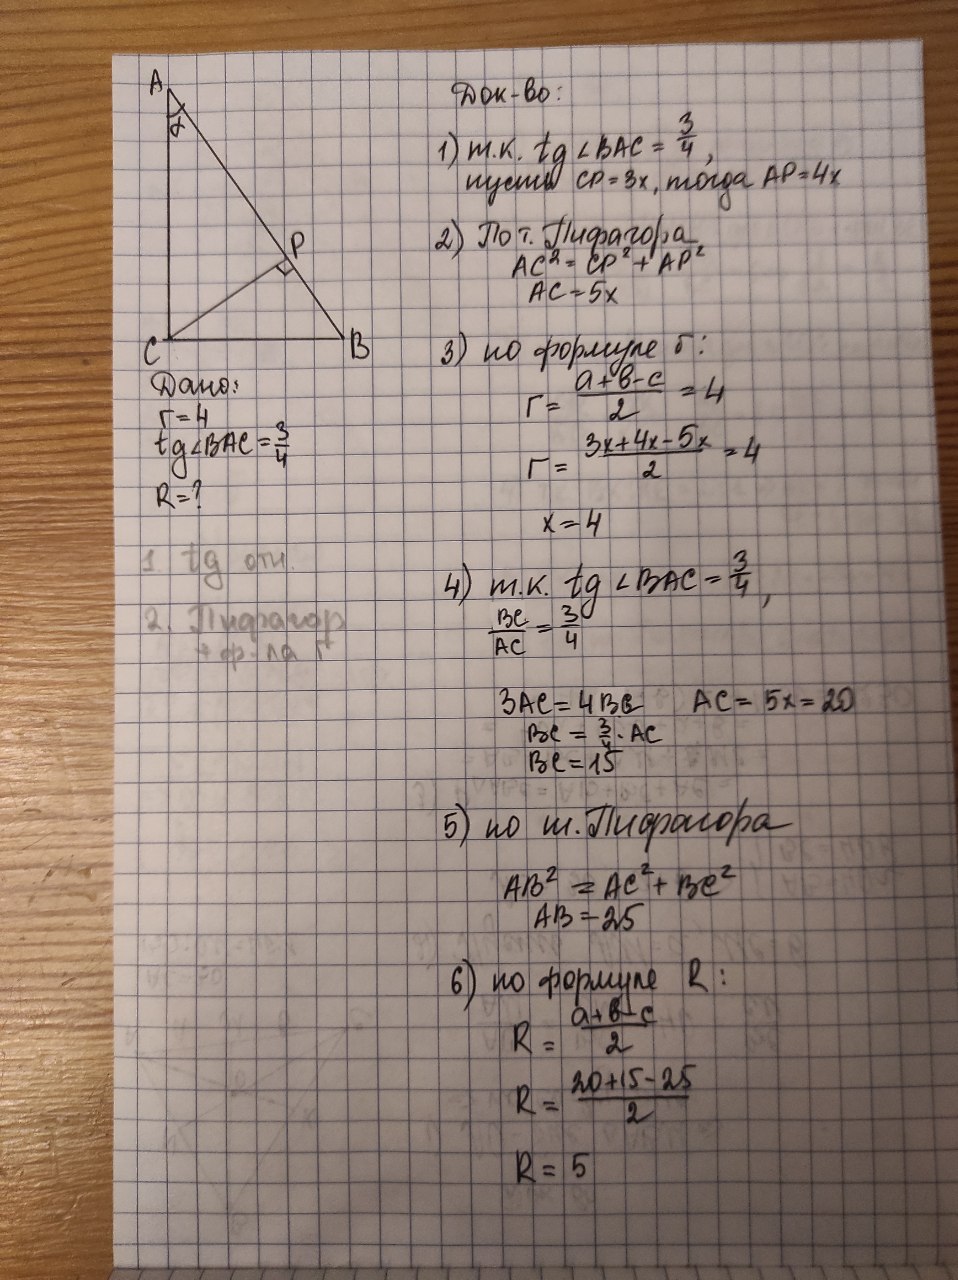 A
α
P
C
B
Дано:
r = 4
tg∠BAC = 3/4
R = ?
1. tg отн.
2. Пифагор
+ ф-ла r
Док-во:
1) т.к. tg ∠BAC = 3/4,
пусть CP = 3x, тогда AP = 4x
2) По т. Пифагора
AC² = CP² + AP²
AC = 5x
3) по формуле r:
r = (a+b-c)/2 = 4
r = (3x+4x-5x)/2 = 4
x = 4
4) т.к. tg ∠BAC = 3/4,
BC/AC = 3/4
3AC = 4BC AC = 5x = 20
BC = 3/4 · AC
BC = 15
5) по т. Пифагора
AB² = AC² + BC²
AB = 25
6) по формуле R:
R = (a+b-c)/2
R = (20+15-25)/2
R = 5